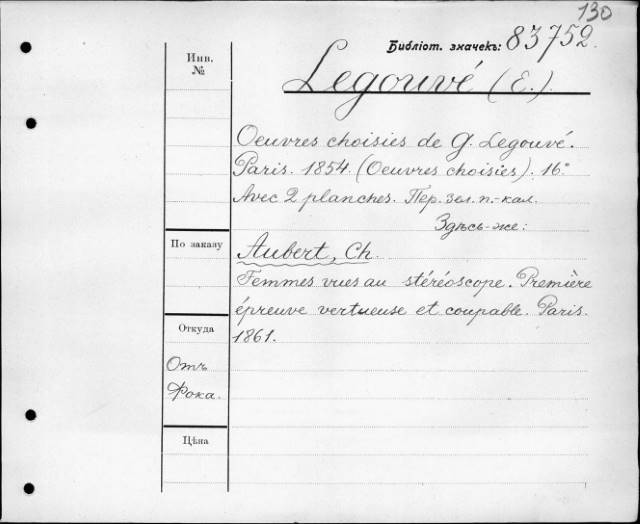 130
Библіот. значекъ: 83752.
Инв.
№
Legouvé (E.).
Oeuvres choisies de G. Legouvé.
Paris. 1854. (Oeuvres choisies). 16°
Avec 2 planches. Пер. зел. п.-кал.
Здѣсь-же:
По заказу
Aubert, Ch.
Femmes vues au stéréoscope. Première
épreuve vertueuse et coupable. Paris.
1861.
Откуда
Отъ
Рока.
Цѣна